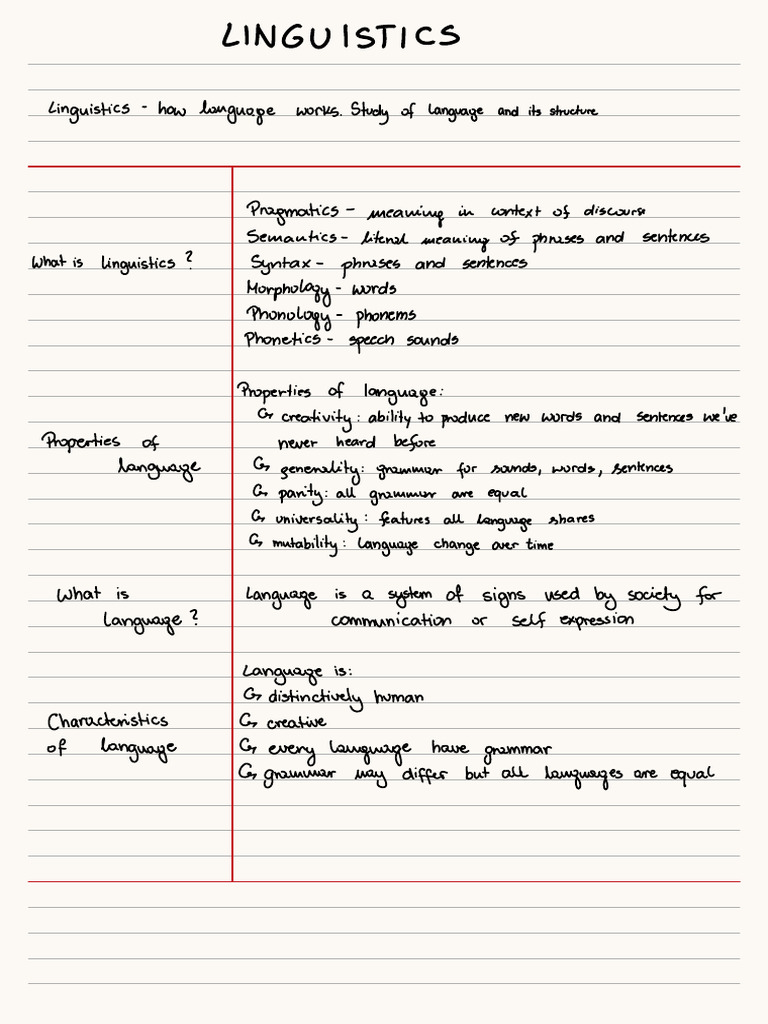 LINGUISTICS
Linguistics - how language works. Study of language and its structure
What is linguistics?
Pragmatics - meaning in context of discourse
Semantics - literal meaning of phrases and sentences
Syntax - phrases and sentences
Morphology - words
Phonology - phonems
Phonetics - speech sounds
Properties of
language
Properties of language:
↪ creativity: ability to produce new words and sentences we've
never heard before
↪ generality: grammar for sounds, words, sentences
↪ parity: all grammar are equal
↪ universality: features all language shares
↪ mutability: language change over time
What is
language?
Language is a system of signs used by society for
communication or self expression
Characteristics
of language
Language is:
↪ distinctively human
↪ creative
↪ every language have grammar
↪ grammar may differ but all languages are equal